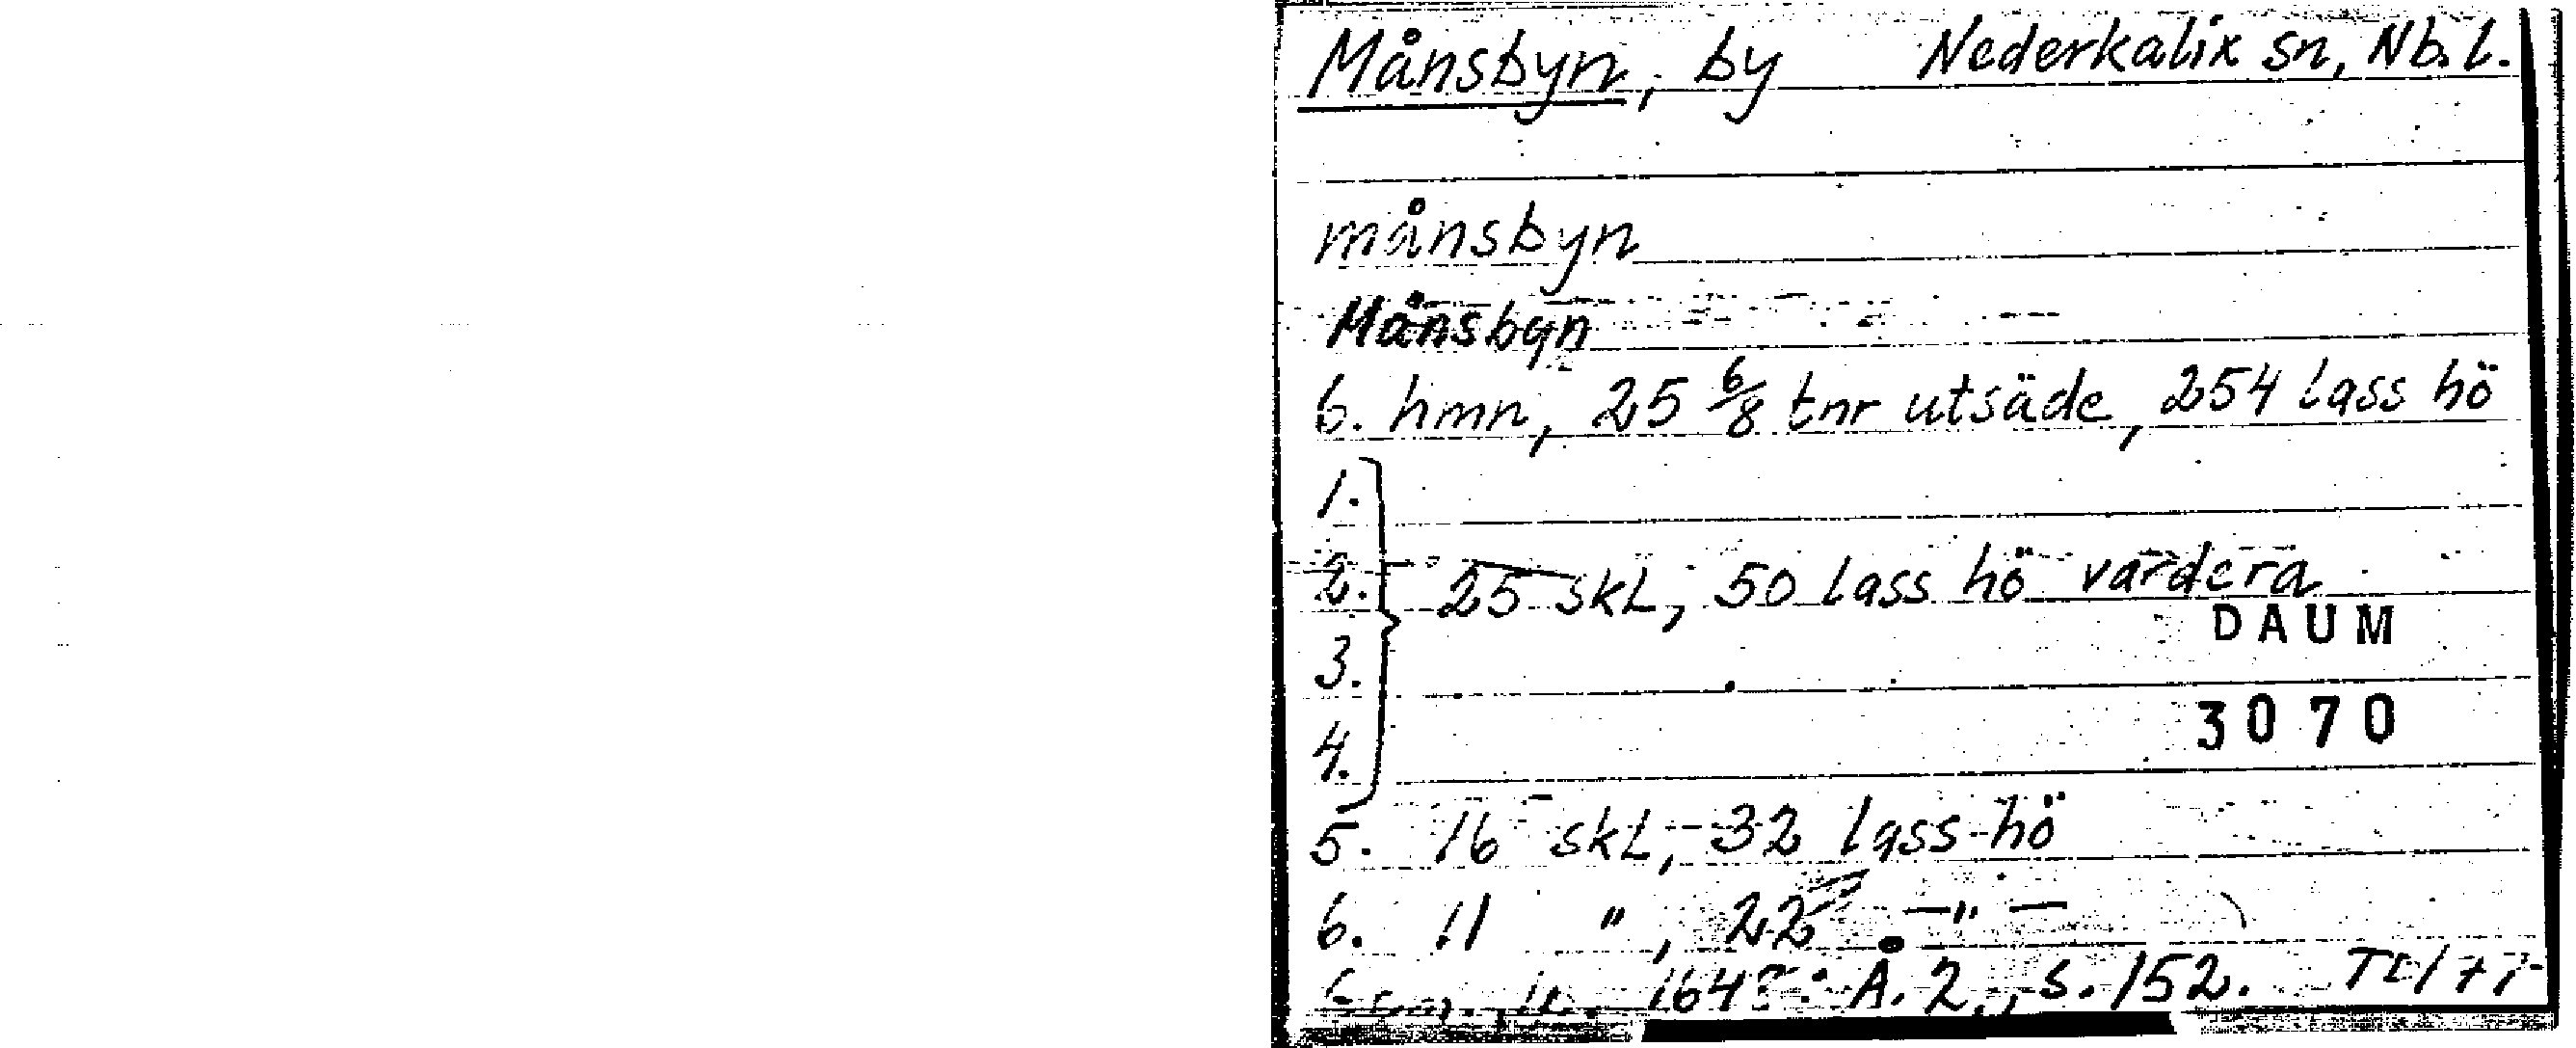 Månsbyn, by Nederkalix sn, Nb. l.
månsbyn
Månsbyn
6. hmn, 25 6/8 tnr utsäde, 254 lass hö
1.
2. 25 skL, 50 lass hö vardera
DAUM
3.
3070
4.
5. 16 skL, 32 lass hö
6. 11 ", 22 —"—
164?: Å. 2, s. 152.